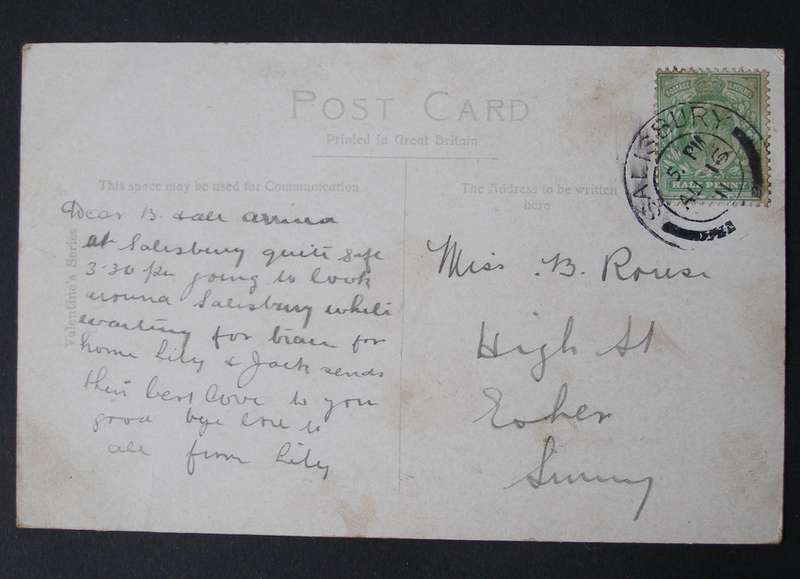 POST CARD
Printed in Great Britain
This space may be used for Communication
The Address to be written
here
Valentine's Series
SALISBURY
5 PM
AU 15
11
HALF PENNY
Dear B. & all arrived
at Salisbury quite safe
3-30 pm going to look
around Salisbury while
waiting for train for
home Lily & Jack sends
their best love to you
good bye love to
all from Lily
Miss B. Rouse
High St
Esher
Surrey